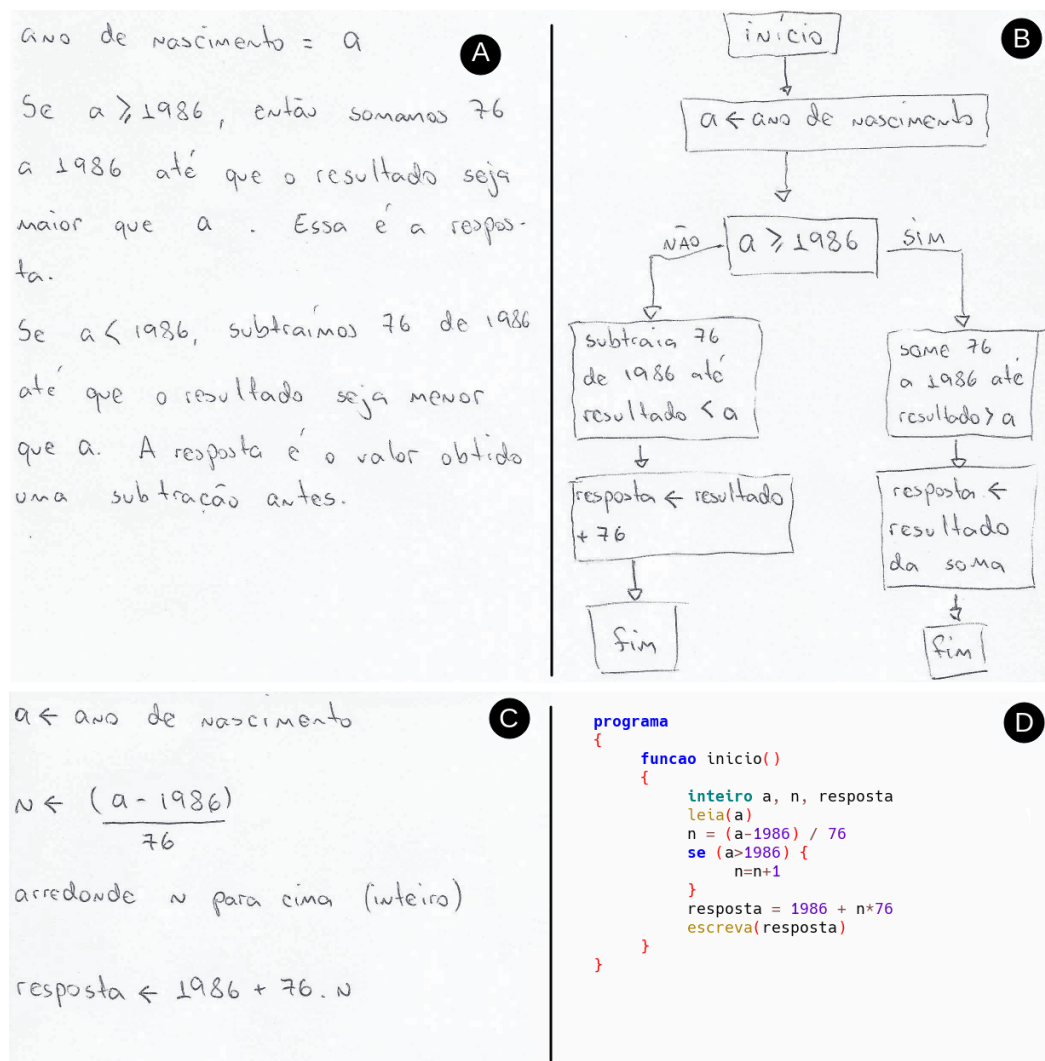 A
ano de nascimento = a
Se a ⩾ 1986, então somamos 76
a 1986 até que o resultado seja
maior que a . Essa é a respos-
ta.
Se a < 1986, subtraímos 76 de 1986
até que o resultado seja menor
que a. A resposta é o valor obtido
uma subtração antes.
B
início
a ← ano de nascimento
a ⩾ 1986
NÃO
SIM
subtraia 76
de 1986 até
resultado < a
resposta ← resultado
+ 76
fim
some 76
a 1986 até
resultado > a
resposta ←
resultado
da soma
fim
C
a ← ano de nascimento
N ← (a - 1986)
76
arredonde N para cima (inteiro)
resposta ← 1986 + 76 . N
D
programa
{
funcao inicio()
{
inteiro a, n, resposta
leia(a)
n = (a-1986) / 76
se (a>1986) {
n=n+1
}
resposta = 1986 + n*76
escreva(resposta)
}
}